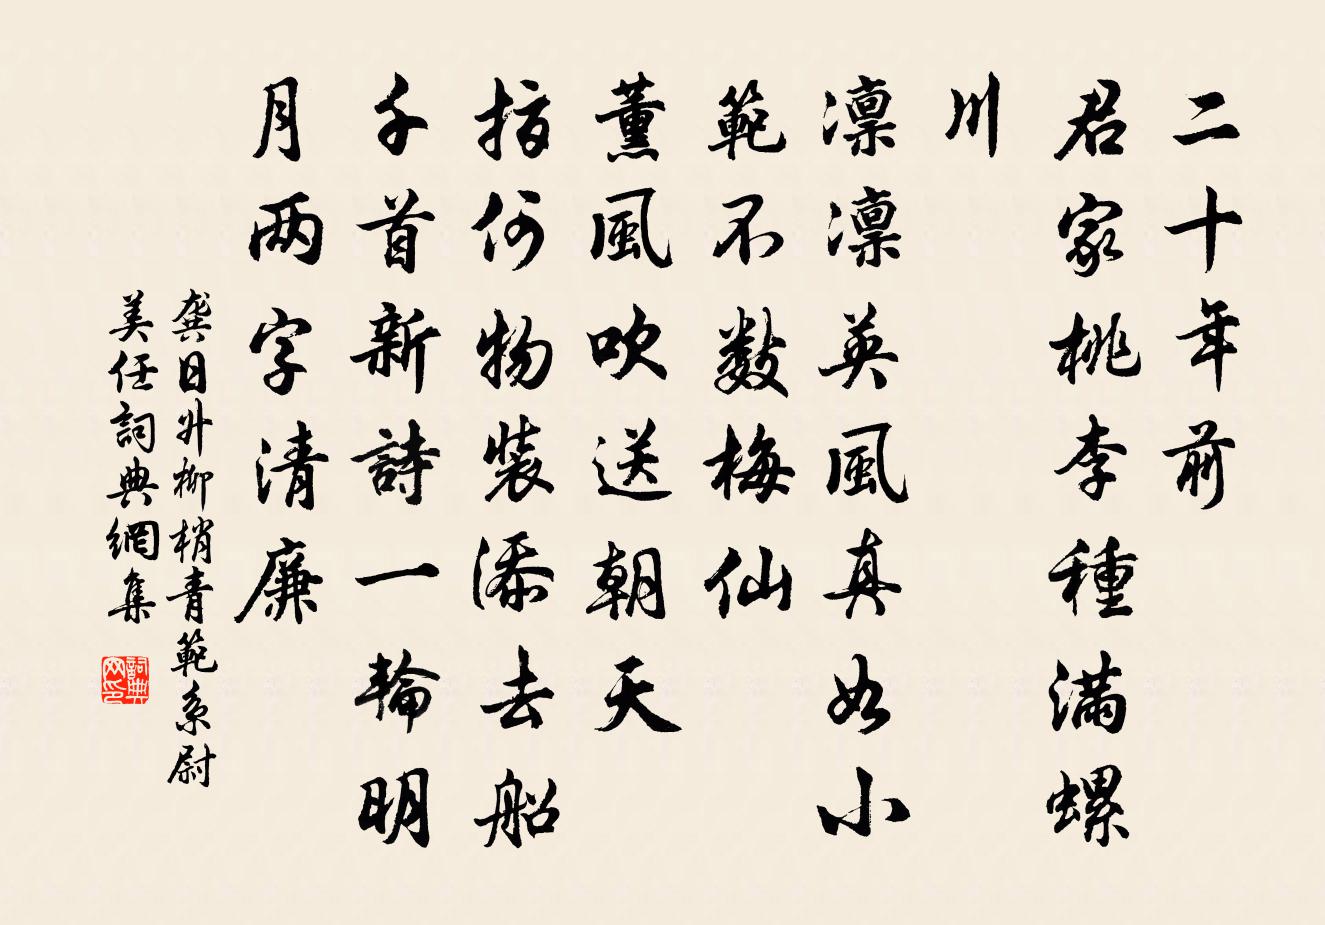 二十年前
君家桃李種滿螺
川
凜凜英風真如小
範不數梅仙
薰風吹送朝天
指何物裝添去船
千首新詩一輪明
月兩字清廉
龔日升柳梢青範系尉
美任詞典網集
詞典网印